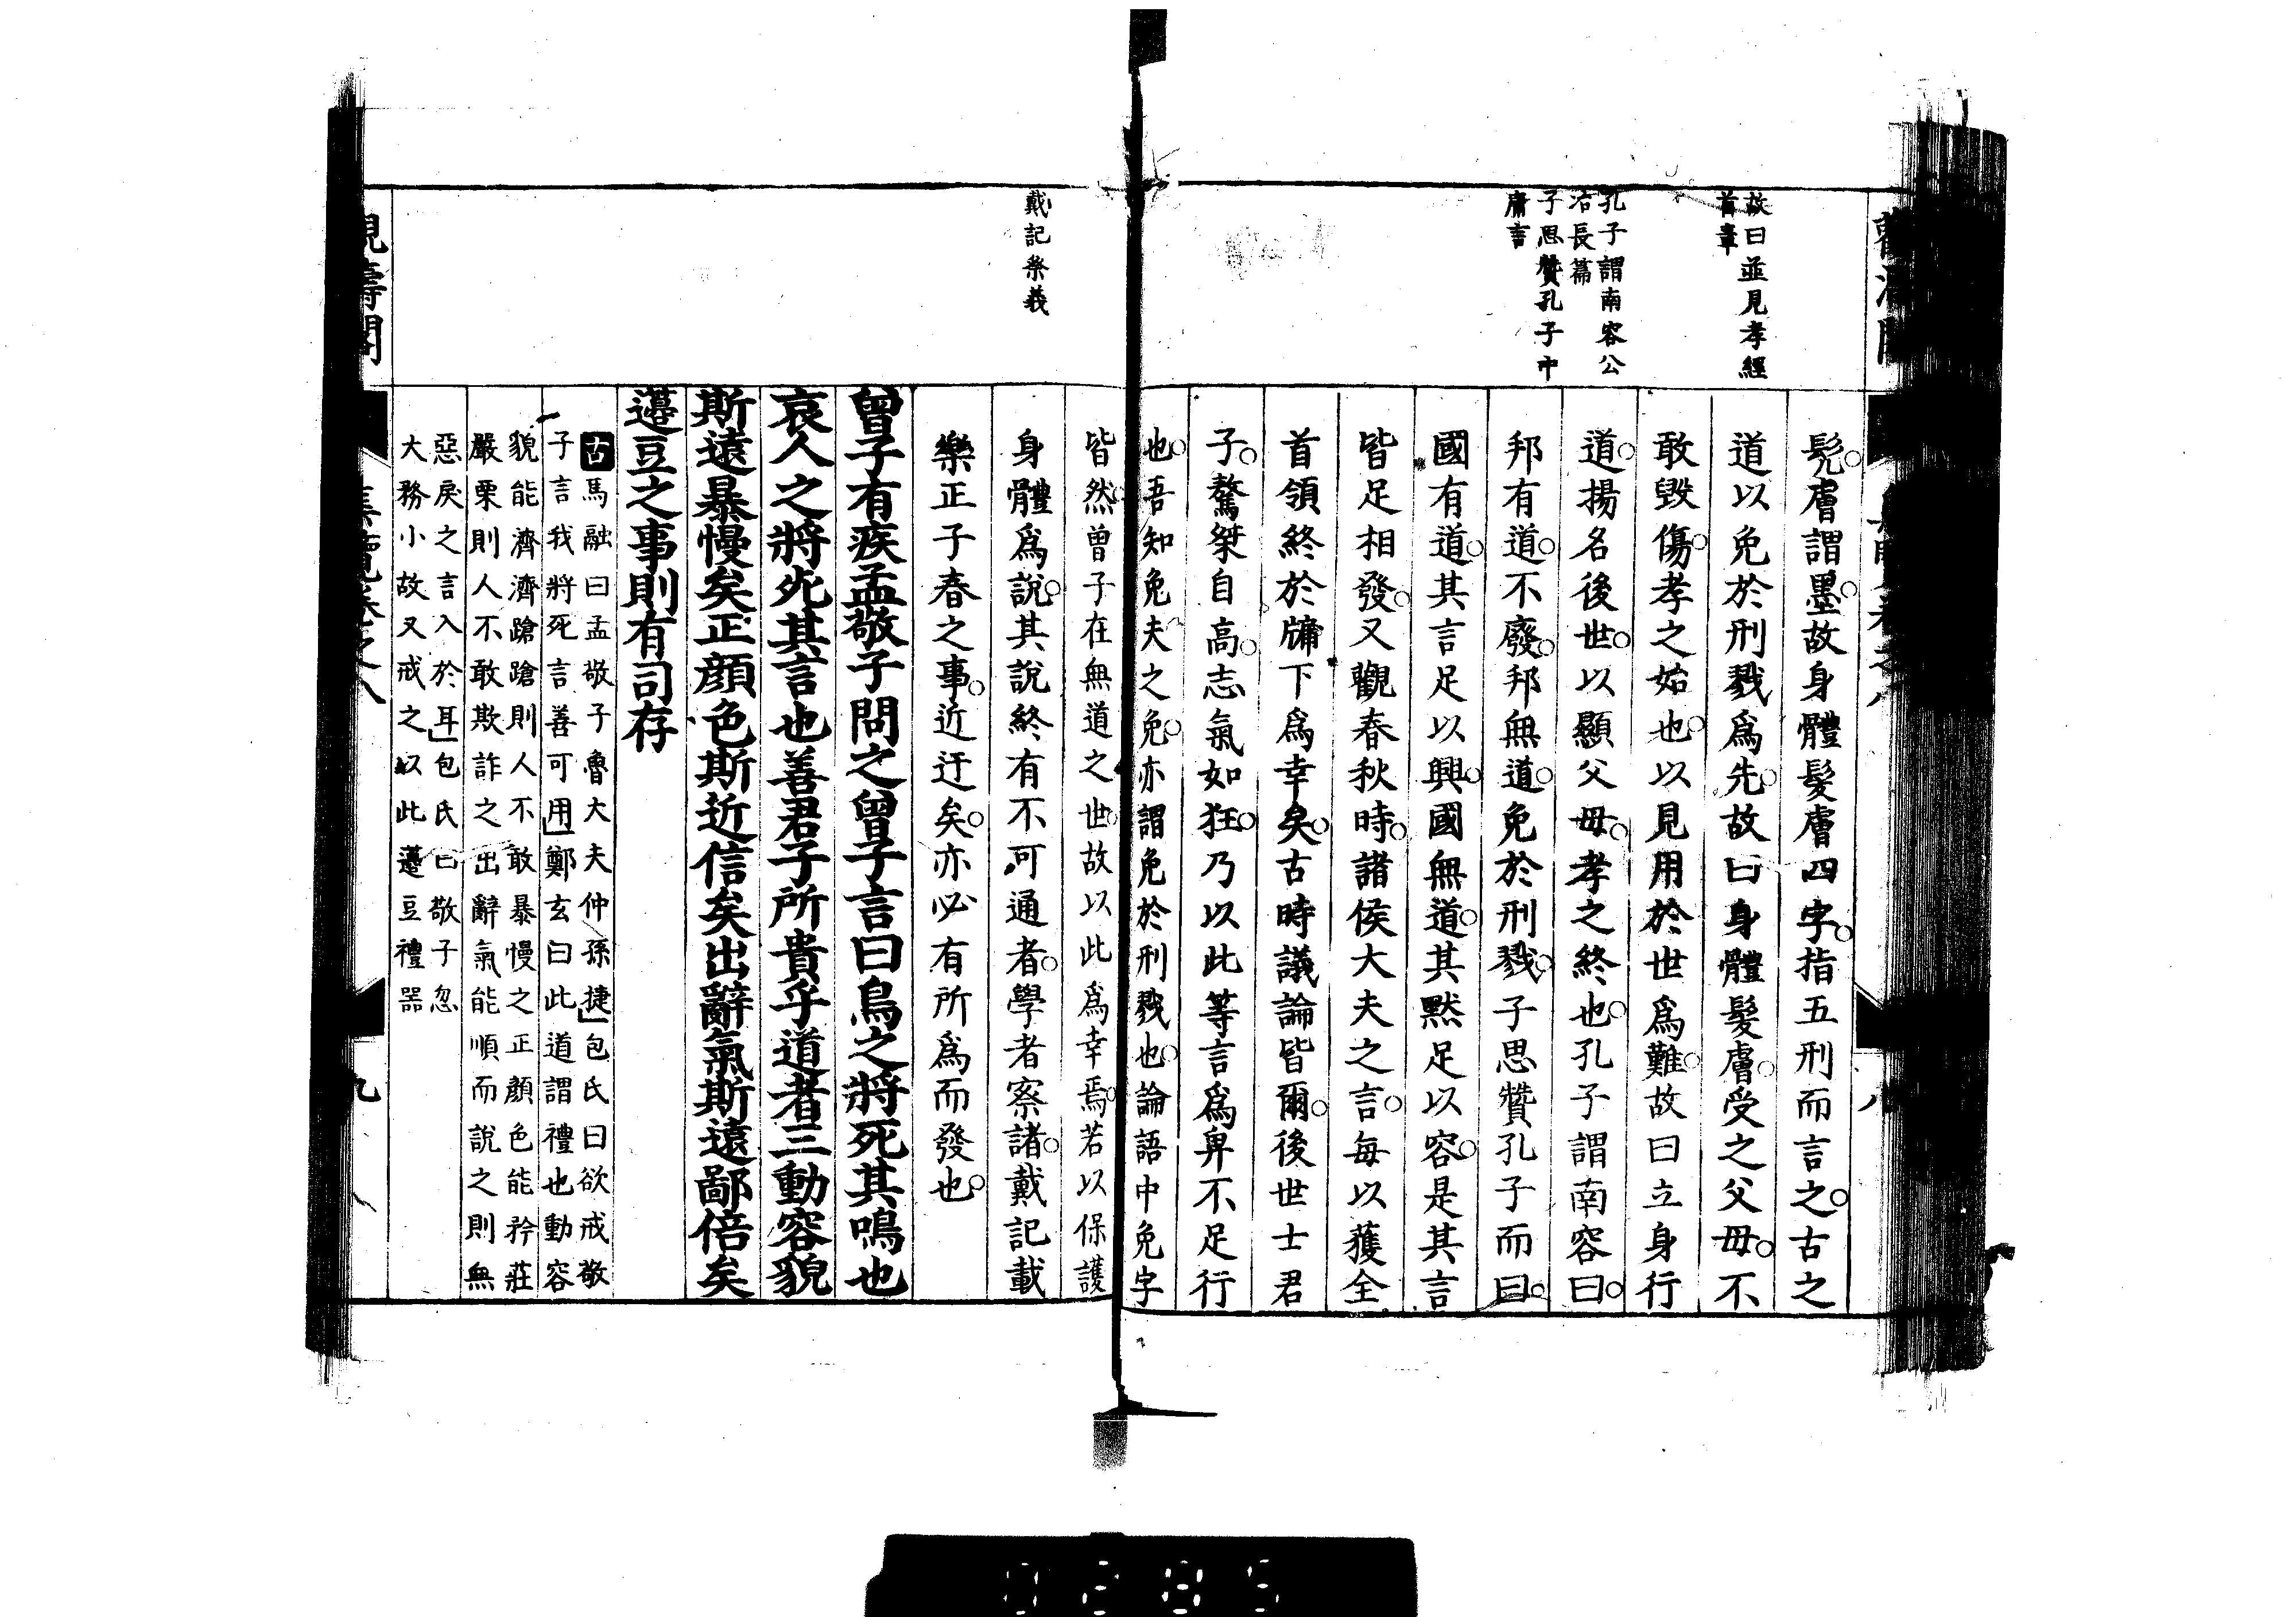 故曰並見孝經
首章
孔子謂南容公
冶長篇
子思贊孔子中
庸言
髠膚謂墨故身體髮膚四字指五刑而言之古之
道以免於刑戮爲先故曰身體髮膚受之父母不
敢毀傷孝之始也以見用於世爲難故曰立身行
道揚名後世以顯父母孝之終也孔子謂南容曰
邦有道不廢邦無道免於刑戮子思贊孔子而曰
國有道其言足以興國無道其默足以容是其言
皆足相發又觀春秋時諸侯大夫之言每以獲全
首領終於牖下爲幸矣古時議論皆爾後世士君
子驁桀自高志氣如狂乃以此等言爲卑不足行
也吾知免夫之免亦謂免於刑戮也論語中免字
八
戴記祭義
皆然曾子在無道之世故以此爲幸焉若以保護
身體爲說其說終有不可通者學者察諸戴記載
樂正子春之事近迂矣亦必有所爲而發也
曾子有疾孟敬子問之曾子言曰鳥之將死其鳴也
哀人之將死其言也善君子所貴乎道者三動容貌
斯遠暴慢矣正顏色斯近信矣出辭氣斯遠鄙倍矣
籩豆之事則有司存
古馬融曰孟敬子魯大夫仲孫捷包氏曰欲戒敬
子言我將死言善可用鄭玄曰此道謂禮也動容
貌能濟濟蹌蹌則人不敢暴慢之正顏色能矜莊
嚴栗則人不敢欺詐之出辭氣能順而說之則無
惡戾之言入於耳包氏曰敬子忽
大務小故又戒之以此籩豆禮器
觀濤閣
集覽卷之八
九